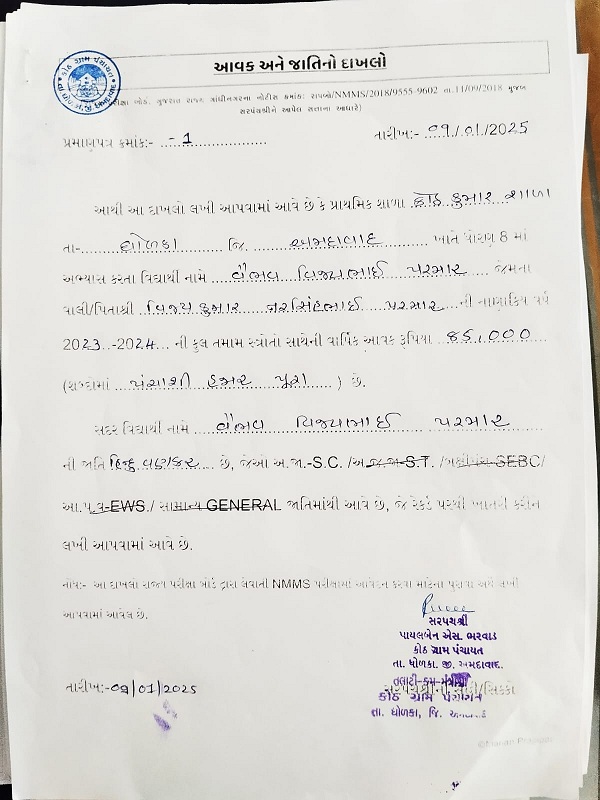 કોઠ ગ્રામ પંચાયત
આવક અને જાતિનો દાખલો
પરીક્ષા બોર્ડ, ગુજરાત રાજ્ય ગાંધીનગરના નોટીસ ક્રમાંક: રાપબો/NMMS/2018/9555-9602 તા.11/09/2018 મુજબ
સરપંચશ્રીને આપેલ સત્તાના આધારે)
પ્રમાણપત્ર ક્રમાંક:- -1 તારીખ:- 09/01/2025
આથી આ દાખલો લખી આપવામાં આવે છે કે પ્રાથમિક શાળા કોઠ કુમાર શાળા
તા- ધોળકા જિ. અમદાવાદ ખાતે ધોરણ 8 માં
અભ્યાસ કરતા વિદ્યાર્થી નામે વૈભવ વિજયભાઈ પરમાર જેમના
વાલી/પિતાશ્રી વિજયકુમાર નરસિંહભાઈ પરમાર ની નાણાકિય વર્ષ
2023 -2024 ની કુલ તમામ સ્ત્રોતો સાથેની વાર્ષિક આવક રૂપિયા 85,000
(શબ્દોમાં પંચાશી હજાર પૂરા ) છે.
સદર વિદ્યાર્થી નામે વૈભવ વિજયભાઈ પરમાર
ની જાતિ હિન્દુ વણકર છે, જેઓ અ.જા.-S.C. /અ.જ.જા-S.T. /બક્ષીપંચ-SEBC/
આ.પ.વ-EWS./ સામાન્ય GENERAL જાતિમાંથી આવે છે, જે રેકર્ડ પરથી ખાતરી કરીને
લખી આપવામાં આવે છે.
નોંધ:- આ દાખલા રાજ્ય પરીક્ષા બોર્ડ દ્વારા લેવાતી NMMS પરીક્ષામાં આવેદન કરવા માટેના પુરાવા અર્થે લખી
આપવામાં આવેલ છે.
સરપંચશ્રી
પાયલબેન એસ. ભરવાડ
કોઠ ગ્રામ પંચાયત
તા. ધોળકા. જી. અમદાવાદ.
તલાટી-કમ-મંત્રીશ્રી
તારીખ:-09/01/2025 સરપંચશ્રીની સહી/સિક્કો
કોઠ ગ્રામ પંચાયત
તા. ધોળકા, જિ. અમદાવાદ